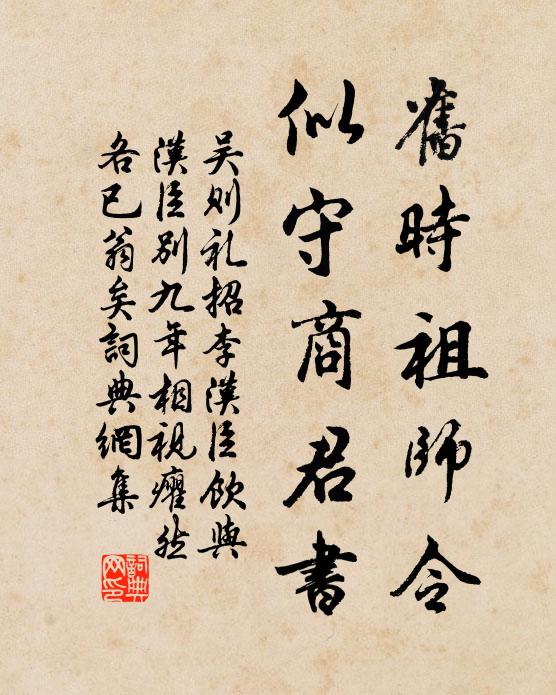 舊時祖師令
似守商君書
吴则礼招李漢臣飲與
漢臣別九年相視癯然
各已翁矣詞典網集
詞典网印